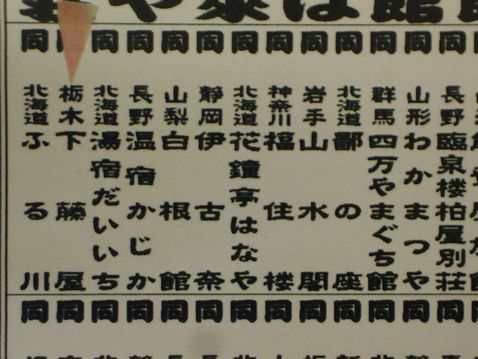 は館
同 長野 臨泉楼柏屋別荘
同 山形 わかまつや
同 群馬 四万やまぐち館
同 北海道 鄙の座
同 岩手 山水閣
同 神奈川 福住楼
同 北海道 花鐘亭はなや
同 静岡 伊古奈
同 山梨 白根館
同 長野 温宿かじか
同 北海道 湯宿だいいち
同 栃木 下藤屋
同 北海道 ふる川
同 同 同 同 同 同 同 同 同 同 同 同 同